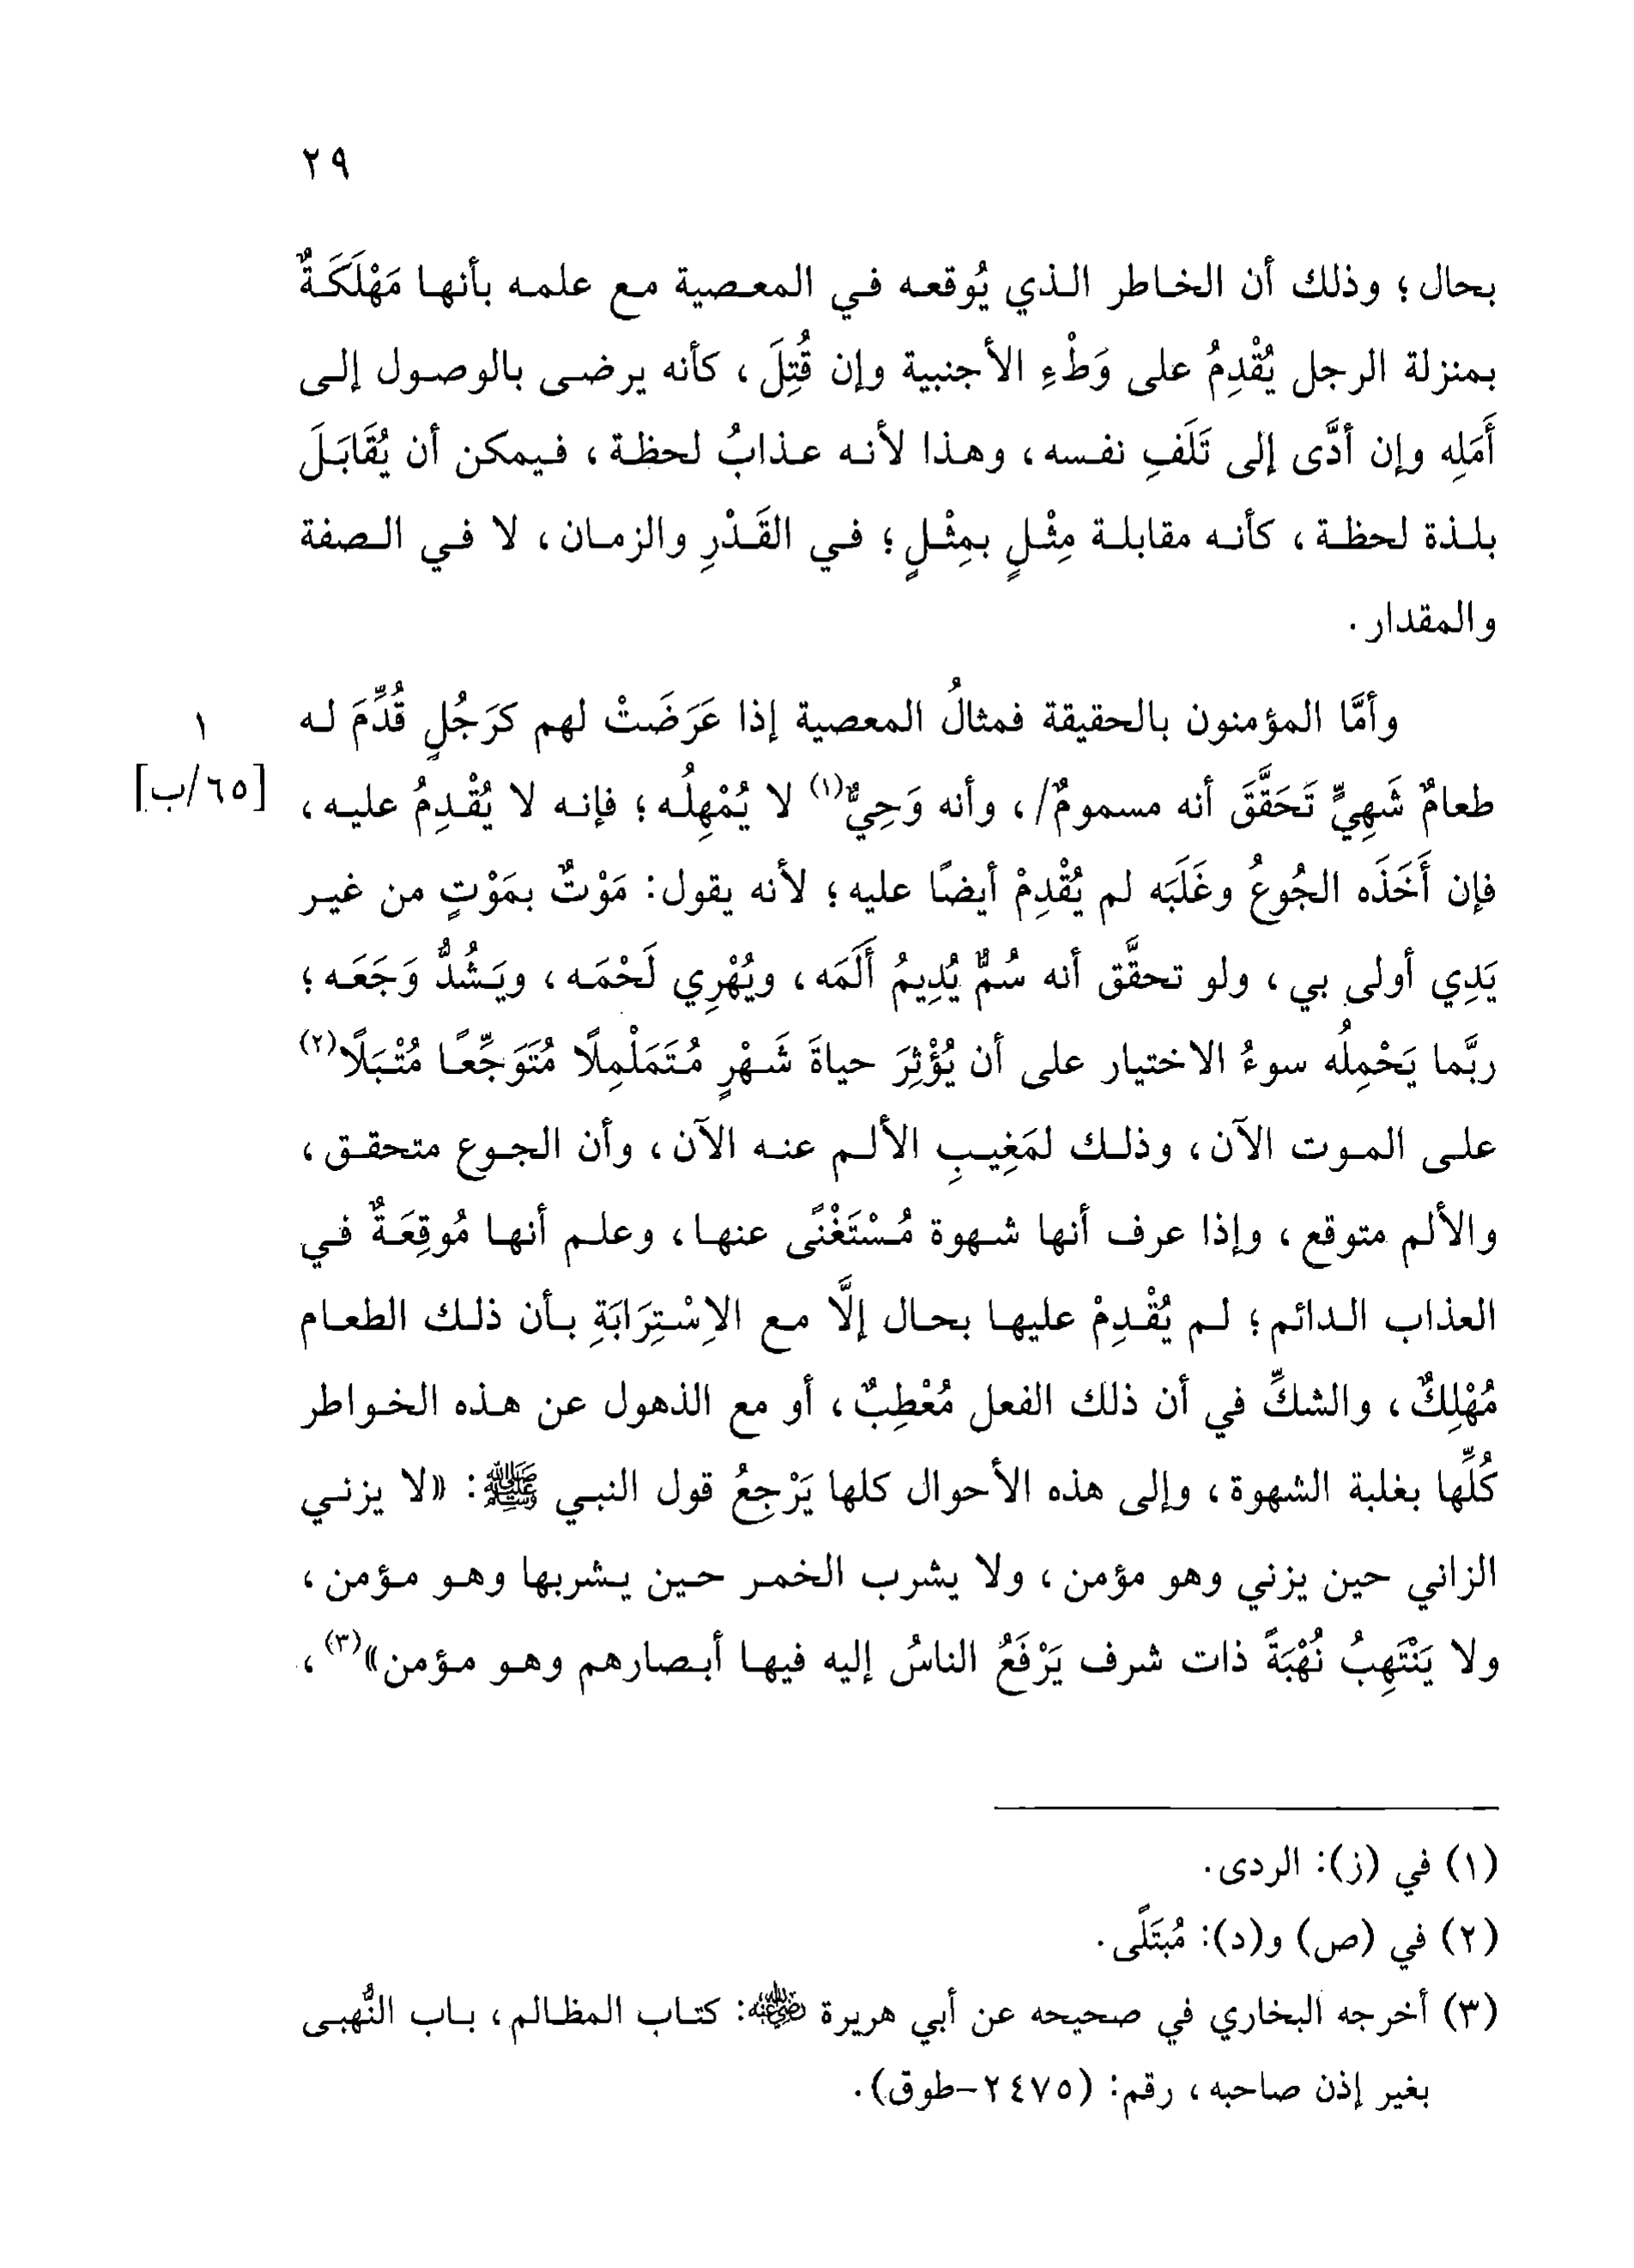 ٢٩
بحال؛ وذلك أن الخاطر الذي يُوقعه في المعصية مع علمه بأنها مَهْلَكَةٌ
بمنزلة الرجل يُقْدِمُ على وَطْءِ الأجنبية وإن قُتِلَ، كأنه يرضى بالوصول إلى
أَمَلِه وإن أدَّى إلى تَلَفِ نفسه، وهذا لأنه عذابُ لحظة، فيمكن أن يُقَابَلَ
بلذة لحظة، كأنه مقابلة مِثْلٍ بمِثْلٍ؛ في القَدْرِ والزمان، لا في الصفة
والمقدار.
وأمَّا المؤمنون بالحقيقة فمثالُ المعصية إذا عَرَضَتْ لهم كرَجُلٍ قُدِّمَ له
١
طعامٌ شَهِيٌّ تَحَقَّقَ أنه مسمومٌ/، وأنه وَحِيٌّ(١) لا يُمْهِلُه؛ فإنه لا يُقْدِمُ عليه،
[٦٥/ب]
فإن أَخَذَه الجُوعُ وغَلَبَه لم يُقْدِمْ أيضًا عليه؛ لأنه يقول: مَوْتٌ بمَوْتٍ من غير
يَدِي أولى بي، ولو تحقَّق أنه سُمٌّ يُدِيمُ أَلَمَه، ويُهْرِي لَحْمَه، ويَشُدُّ وَجَعَه؛
ربَّما يَحْمِلُه سوءُ الاختيار على أن يُؤْثِرَ حياةَ شَهْرٍ مُتَمَلْمِلًا مُتَوَجِّعًا مُتْبَلًا(٢)
على الموت الآن، وذلك لمَغِيبِ الألم عنه الآن، وأن الجوع متحقق،
والألم متوقع، وإذا عرف أنها شهوة مُسْتَغْنًى عنها، وعلم أنها مُوقِعَةٌ في
العذاب الدائم؛ لم يُقْدِمْ عليها بحال إلَّا مع الاِسْتِرَابَةِ بأن ذلك الطعام
مُهْلِكٌ، والشكِّ في أن ذلك الفعل مُعْطِبٌ، أو مع الذهول عن هذه الخواطر
كُلِّها بغلبة الشهوة، وإلى هذه الأحوال كلها يَرْجِعُ قول النبي ﷺ: «لا يزني
الزاني حين يزني وهو مؤمن، ولا يشرب الخمر حين يشربها وهو مؤمن،
ولا يَنْتَهِبُ نُهْبَةً ذات شرف يَرْفَعُ الناسُ إليه فيها أبصارهم وهو مؤمن»(٣)،
(١) في (ز): الردى.
(٢) في (ص) و(د): مُبتَلًى.
(٣) أخرجه البخاري في صحيحه عن أبي هريرة رضي الله عنه: كتاب المظالم، باب النُّهبى
بغير إذن صاحبه، رقم: (٢٤٧٥-طوق).